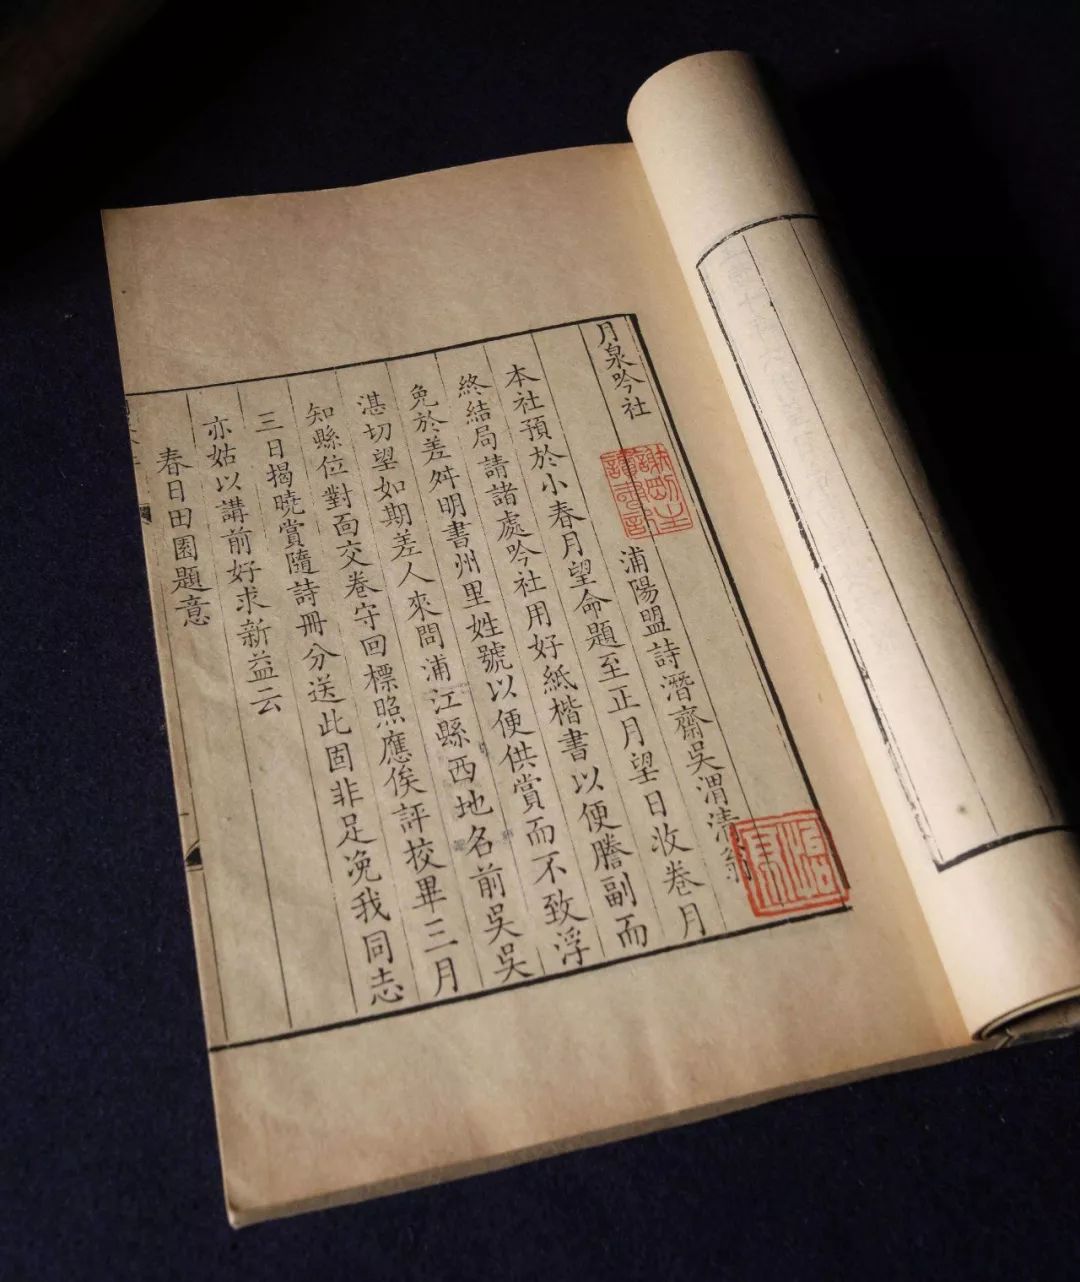 月泉吟社
浦陽盟詩潛齋吳渭清翁
本社預於小春月望命題至正月望日收卷月
終結局請諸處吟社用好紙楷書以便謄副而
免於差舛明書州里姓號以便供賞而不致浮
湛切望如期差人來問浦江縣西地名前吳吳
知縣位對面交卷守回標照應俟評校畢三月
三日揭曉賞隨詩冊分送此固非足浼我同志
亦姑以講前好求新益云
春日田園題意